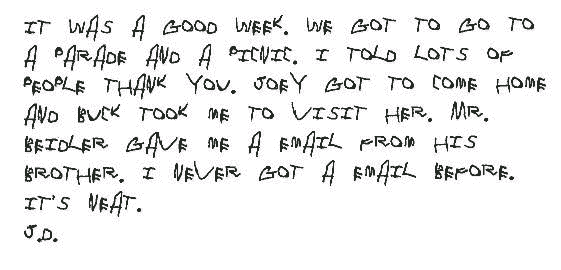 IT WAS A GOOD WEEK. WE GOT TO GO TO
A PARADE AND A PICNIC. I TOLD LOTS OF
PEOPLE THANK YOU. JOEY GOT TO COME HOME
AND BUCK TOOK ME TO VISIT HER. MR.
BEIDLER GAVE ME A EMAIL FROM HIS
BROTHER. I NEVER GOT A EMAIL BEFORE.
IT'S NEAT.
J.D.